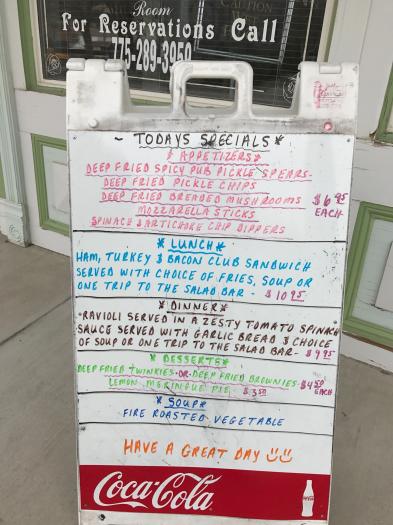 Room
For Reservations Call
775-289-3959
~ TODAYS SPECIALS *
* APPETIZERS *
DEEP FRIED SPICY PUB PICKLE SPEARS-
DEEP FRIED PICKLE CHIPS
DEEP FRIED BREADED MUSHROOMS $6.95
MOZZARELLA STICKS EACH
SPINACH & ARTICHOKE CHIP DIPPERS
* LUNCH *
HAM, TURKEY & BACON CLUB SANDWICH
SERVED WITH CHOICE OF FRIES, SOUP OR
ONE TRIP TO THE SALAD BAR - $10.95
* DINNER *
RAVIOLI SERVED IN A ZESTY TOMATO SPINACH
SAUCE SERVED WITH GARLIC BREAD & CHOICE
OF SOUP OR ONE TRIP TO THE SALAD BAR - $9.95
* DESSERTS *
DEEP FRIED TWINKIES -OR- DEEP FRIED BROWNIES - $4.50
LEMON MERINGUE PIE - $3.50 EACH
* SOUP *
FIRE ROASTED VEGETABLE
HAVE A GREAT DAY
Coca-Cola